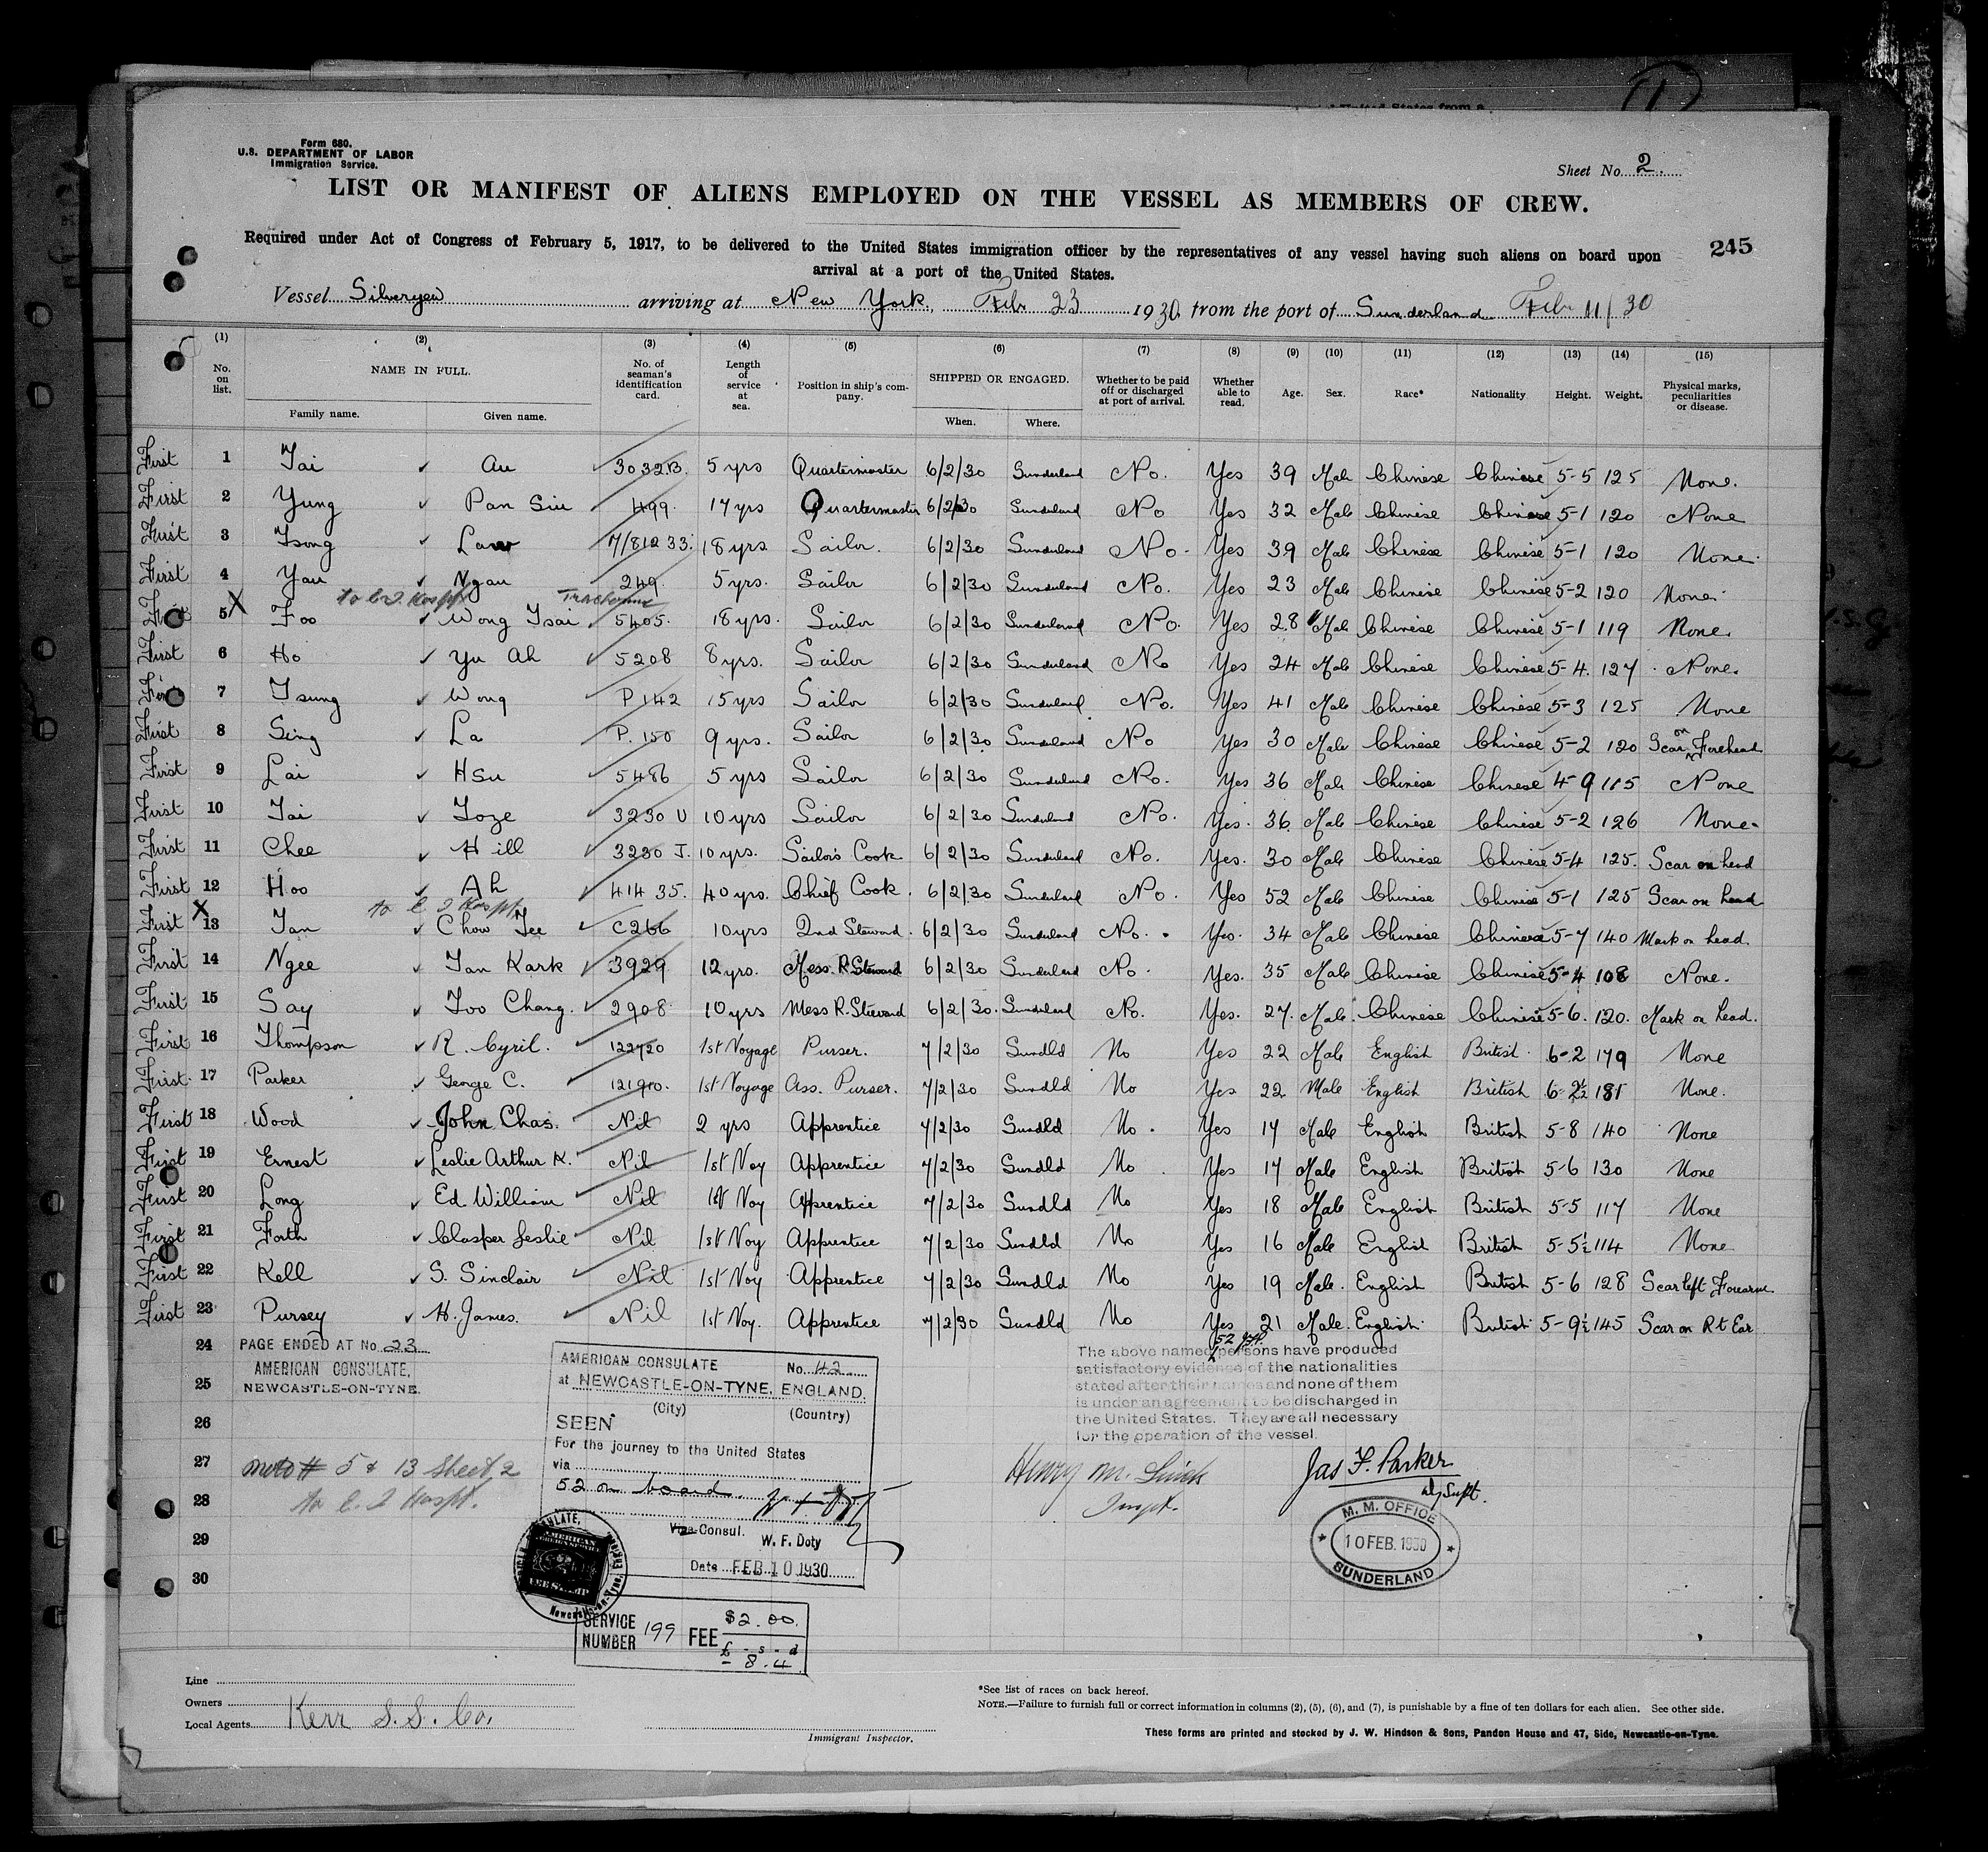 Form 680.
U.S. DEPARTMENT OF LABOR
Immigration Service.
Sheet No. 2.
LIST OR MANIFEST OF ALIENS EMPLOYED ON THE VESSEL AS MEMBERS OF CREW.
Required under Act of Congress of February 5, 1917, to be delivered to the United States immigration officer by the representatives of any vessel having such aliens on board upon
arrival at a port of the United States.
245
Vessel Silveryew arriving at New York, Feb 23 1930 from the port of Sunderland Feb 11/30
(1) (2) (3) (4) (5) (6) (7) (8) (9) (10) (11) (12) (13) (14) (15)
No. on list. NAME IN FULL. Family name. Given name. No. of seaman's identification card. Length of service at sea. Position in ship's company. SHIPPED OR ENGAGED. When. Where. Whether to be paid off or discharged at port of arrival. Whether able to read. Age. Sex. Race* Nationality Height. Weight. Physical marks, peculiarities or disease.
First 1 Tai Au 3032B. 5 yrs Quartermaster 6/2/30 Sunderland No. Yes 39 Male Chinese Chinese 5-5 125 None.
First 2 Yung Pan Siu 499. 17 yrs Quartermaster 6/2/30 Sunderland No Yes 32 Male Chinese Chinese 5-1 120 None
First 3 Tsong Law 7/81233. 18 yrs Sailor. 6/2/30 Sunderland No. Yes 39 Male Chinese Chinese 5-1 120 None.
First 4 Yau Ngau 249. 5 yrs. Sailor 6/2/30 Sunderland No. Yes 23 Male Chinese Chinese 5-2 120 None.
to E.I. Hospt. Trachoma
First 5 X Foo Wong Tsai 5405. 18 yrs. Sailor 6/2/30 Sunderland No. Yes 28 Male Chinese Chinese 5-1 119 None.
First 6 Ho Yu Ah 5208 8 yrs. Sailor 6/2/30 Sunderland No Yes 24 Male Chinese Chinese 5-4. 127 None.
First 7 Tsung Wong P142 15 yrs Sailor 6/2/30 Sunderland No. Yes 41 Male Chinese Chinese 5-3 125 None
First 8 Sing La P. 150 9 yrs. Sailor 6/2/30 Sunderland No Yes 30 Male Chinese Chinese 5-2 120 Scar on Forehead
First 9 Lai Hsu 5486 5 yrs Sailor 6/2/30 Sunderland No. Yes 36 Male Chinese Chinese 4-9 115 None
First 10 Tai Toze 3230 U 10 yrs Sailor 6/2/30 Sunderland No. Yes. 36 Male Chinese Chinese 5-2 126 None.
First 11 Chee Hill 3230 J. 10 yrs. Sailor's Cook 6/2/30 Sunderland No. Yes. 30 Male Chinese Chinese 5-4 125. Scar on head
First 12 Hoo Ah 41435. 40 yrs. Chief Cook. 6/2/30 Sunderland No. Yes 52 Male Chinese Chinese 5-1 125 Scar on head
to E I Hospt
First X 13 Tan Chow Tee C266 10 yrs 2nd Steward. 6/2/30 Sunderland No. Yes. 34 Male Chinese Chinese 5-7 140 Mark on head.
First 14 Ngee Tan Kark 3929 12 yrs. Mess. R. Steward 6/2/30 Sunderland No. Yes. 35 Male Chinese Chinese 5-4 108 None.
First 15 Say Too Chang. 2908. 10 yrs Mess R. Steward 6/2/30. Sunderland No. Yes. 27. Male. Chinese Chinese 5-6. 120. Mark on head.
First 16 Thompson R. Cyril. 122720 1st Voyage Purser. 7/2/30 Sundld No Yes 22 Male English British. 6-2 179 None
First. 17 Parker George C. 121910. 1st Voyage Ass. Purser. 7/2/30 Sundld No Yes 22 Male English British 6-2½ 181 None.
First 18 Wood John Chas. Nil 2 yrs Apprentice 7/2/30 Sundld No. Yes 17 Male English British 5-8 140 None
First 19 Ernest Leslie Arthur K. Nil 1st Voy Apprentice 7/2/30 Sundld No. Yes 17 Male English British 5-6 130 None
First 20 Long Ed. William Nil 1st Voy Apprentice 7/2/30 Sundld No Yes 18 Male English British 5-5 117 None
First 21 Forth Clasper Leslie Nil 1st Voy Apprentice 7/2/30 Sundld No Yes 16 Male English British 5-5½ 114 None
First 22 Kell S. Sinclair Nil 1st Voy Apprentice 7/2/30 Sundld No Yes 19 Male. English British 5-6 128 Scar left Forearm
First 23 Pursey H. James. Nil 1st Voy. Apprentice 7/2/30 Sundld No Yes 21 Male. English British 5-9½ 145 Scar on Rt Ear
24 PAGE ENDED AT No. 23
AMERICAN CONSULATE,
NEWCASTLE-ON-TYNE.
25
26
27 5 & 13 Sheet 2
28 to E. I Hospt.
29
30
AMERICAN CONSULATE No. 42.
at NEWCASTLE-ON-TYNE, ENGLAND.
(City) (Country)
SEEN
For the journey to the United States
via
52 on board.
Vice-Consul.
W. F. Doty
Date FEB 10 1930
SERVICE NUMBER 199 FEE $2.00.
£ - s - d
- 8. 4
52
The above named persons have produced
satisfactory evidence of the nationalities
stated after their names and none of them
is under an agreement to be discharged in
the United States. They are all necessary
for the operation of the vessel.
Henry M.
Inspt.
Jas F. Parker
Supt.
M. M. OFFICE
10 FEB. 1930
SUNDERLAND
Line
Owners
Local Agents Kerr S.S. Co.
Immigrant Inspector.
*See list of races on back hereof.
NOTE.—Failure to furnish full or correct information in columns (2), (5), (6), and (7), is punishable by a fine of ten dollars for each alien. See other side.
These forms are printed and stocked by J. W. Hindson & Sons, Pandon House and 47, Side, Newcastle-on-Tyne.